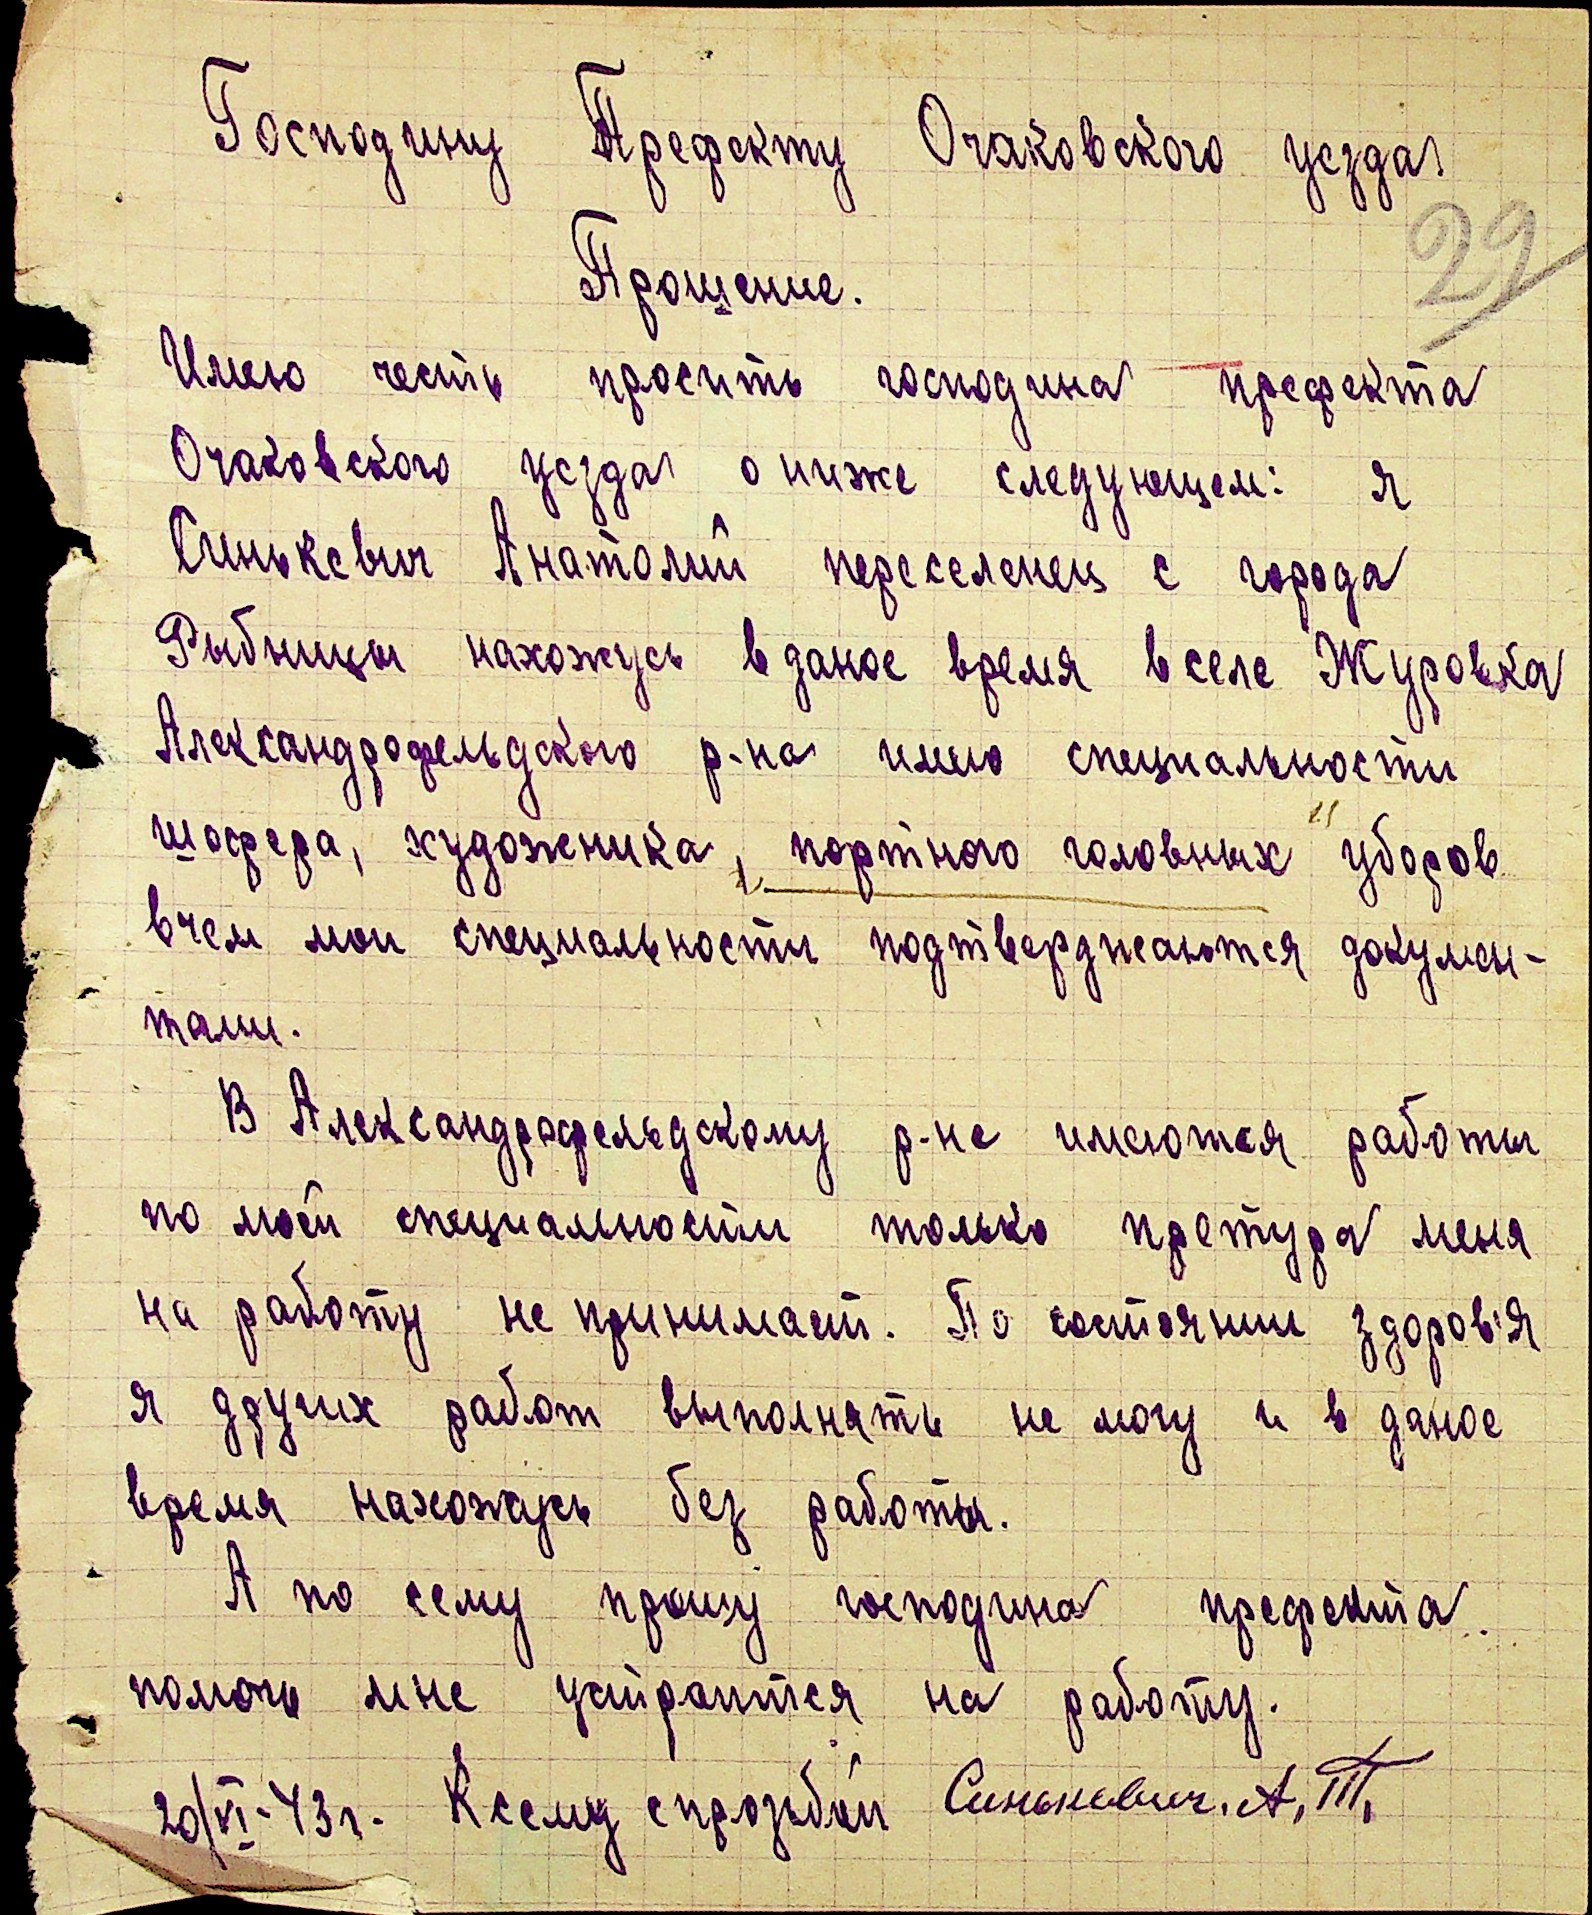 Господину Префекту Очаковского уезда
29
Прошение.
Имею честь просить господина префекта
Очаковского уезда о ниже следующем: я
Синькевич Анатолий переселенец с города
Рыбницы нахожусь в даное время в селе Журовка
Александрофельдского р-на имею специальности
шофера, художника, портного головных уборов
вчем мои специальности подтверджаются докумен-
тами.
В Александрофельдскому р-не имеются работы
по моей специальности только претура меня
на работу не принимает. По состоянии здоров'я
я других работ выполнять не могу и в даное
время нахожусь без работы.
А по сему прошу господина префекта
помочь мне устроится на работу.
20/VI-43г. К сему спрозьбой Синькевич. А, Т,